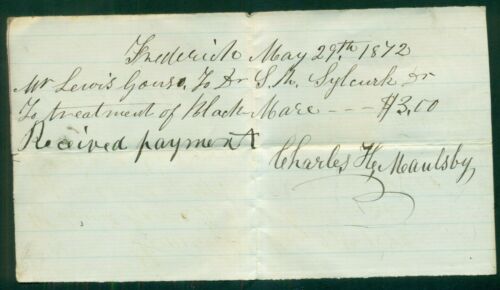 Frederick May 29th 1872
Mr Lewis To Dr S. Dr
To treatment of Black Mare --- $3.00
Received payment
Charles H. Maulsby